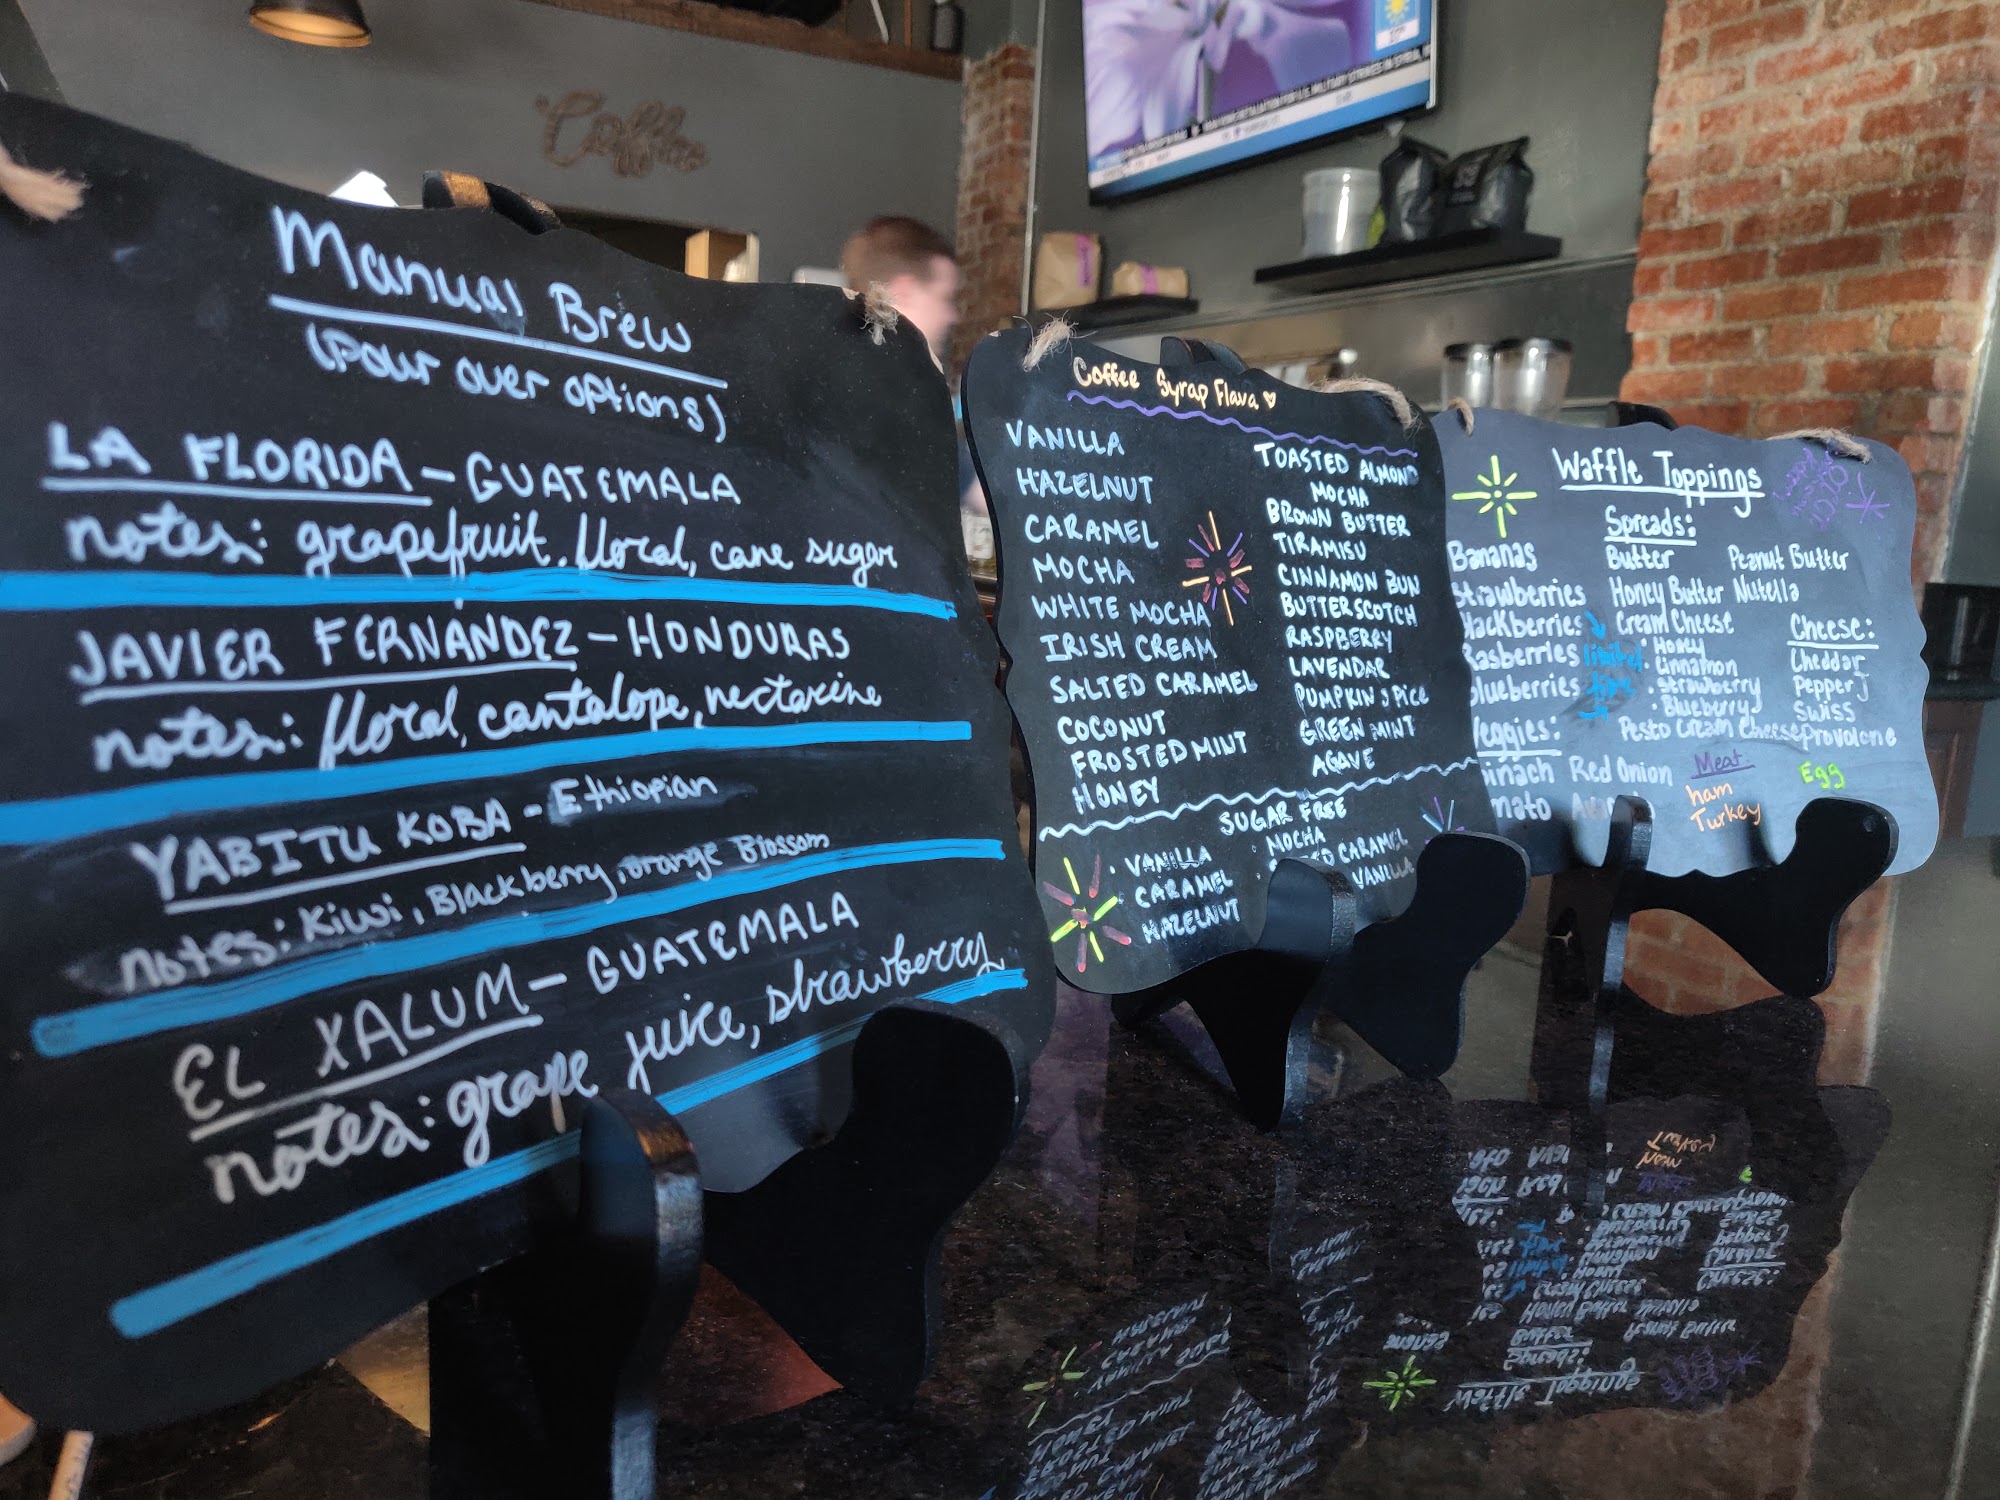 Coffee
Manual Brew
(pour over options)
LA FLORIDA - GUATEMALA
notes: grapefruit, floral, cane sugar
JAVIER FERNÁNDEZ - HONDURAS
notes: floral, cantalope, nectarine
YABITU KOBA - Ethiopian
notes: Kiwi, Blackberry, orange Blossom
EL XALUM - GUATEMALA
notes: grape juice, strawberry
Coffee Syrap Flava
VANILLA
HAZELNUT
CARAMEL
MOCHA
WHITE MOCHA
IRISH CREAM
SALTED CARAMEL
COCONUT
FROSTED MINT
HONEY
TOASTED ALMOND
MOCHA
BROWN BUTTER
TIRAMISU
CINNAMON BUN
BUTTERSCOTCH
RASPBERRY
LAVENDAR
PUMPKIN SPICE
GREEN MINT
AGAVE
SUGAR FREE
· VANILLA
CARAMEL
HAZELNUT
· MOCHA
CARAMEL
VANILLA
Waffle Toppings
Bananas
Strawberries
Blackberries
Rasberries
Blueberries
Veggies:
Red Onion
Spreads:
Butter
Honey Butter
Cream Cheese
· Honey
· Cinnamon
· Strawberry
· Blueberry
Pesto Cream Cheese
limited
time
Peanut Butter
Nutella
Cheese:
Cheddar
Pepper J
Swiss
Provolone
Meat:
ham
Turkey
Egg